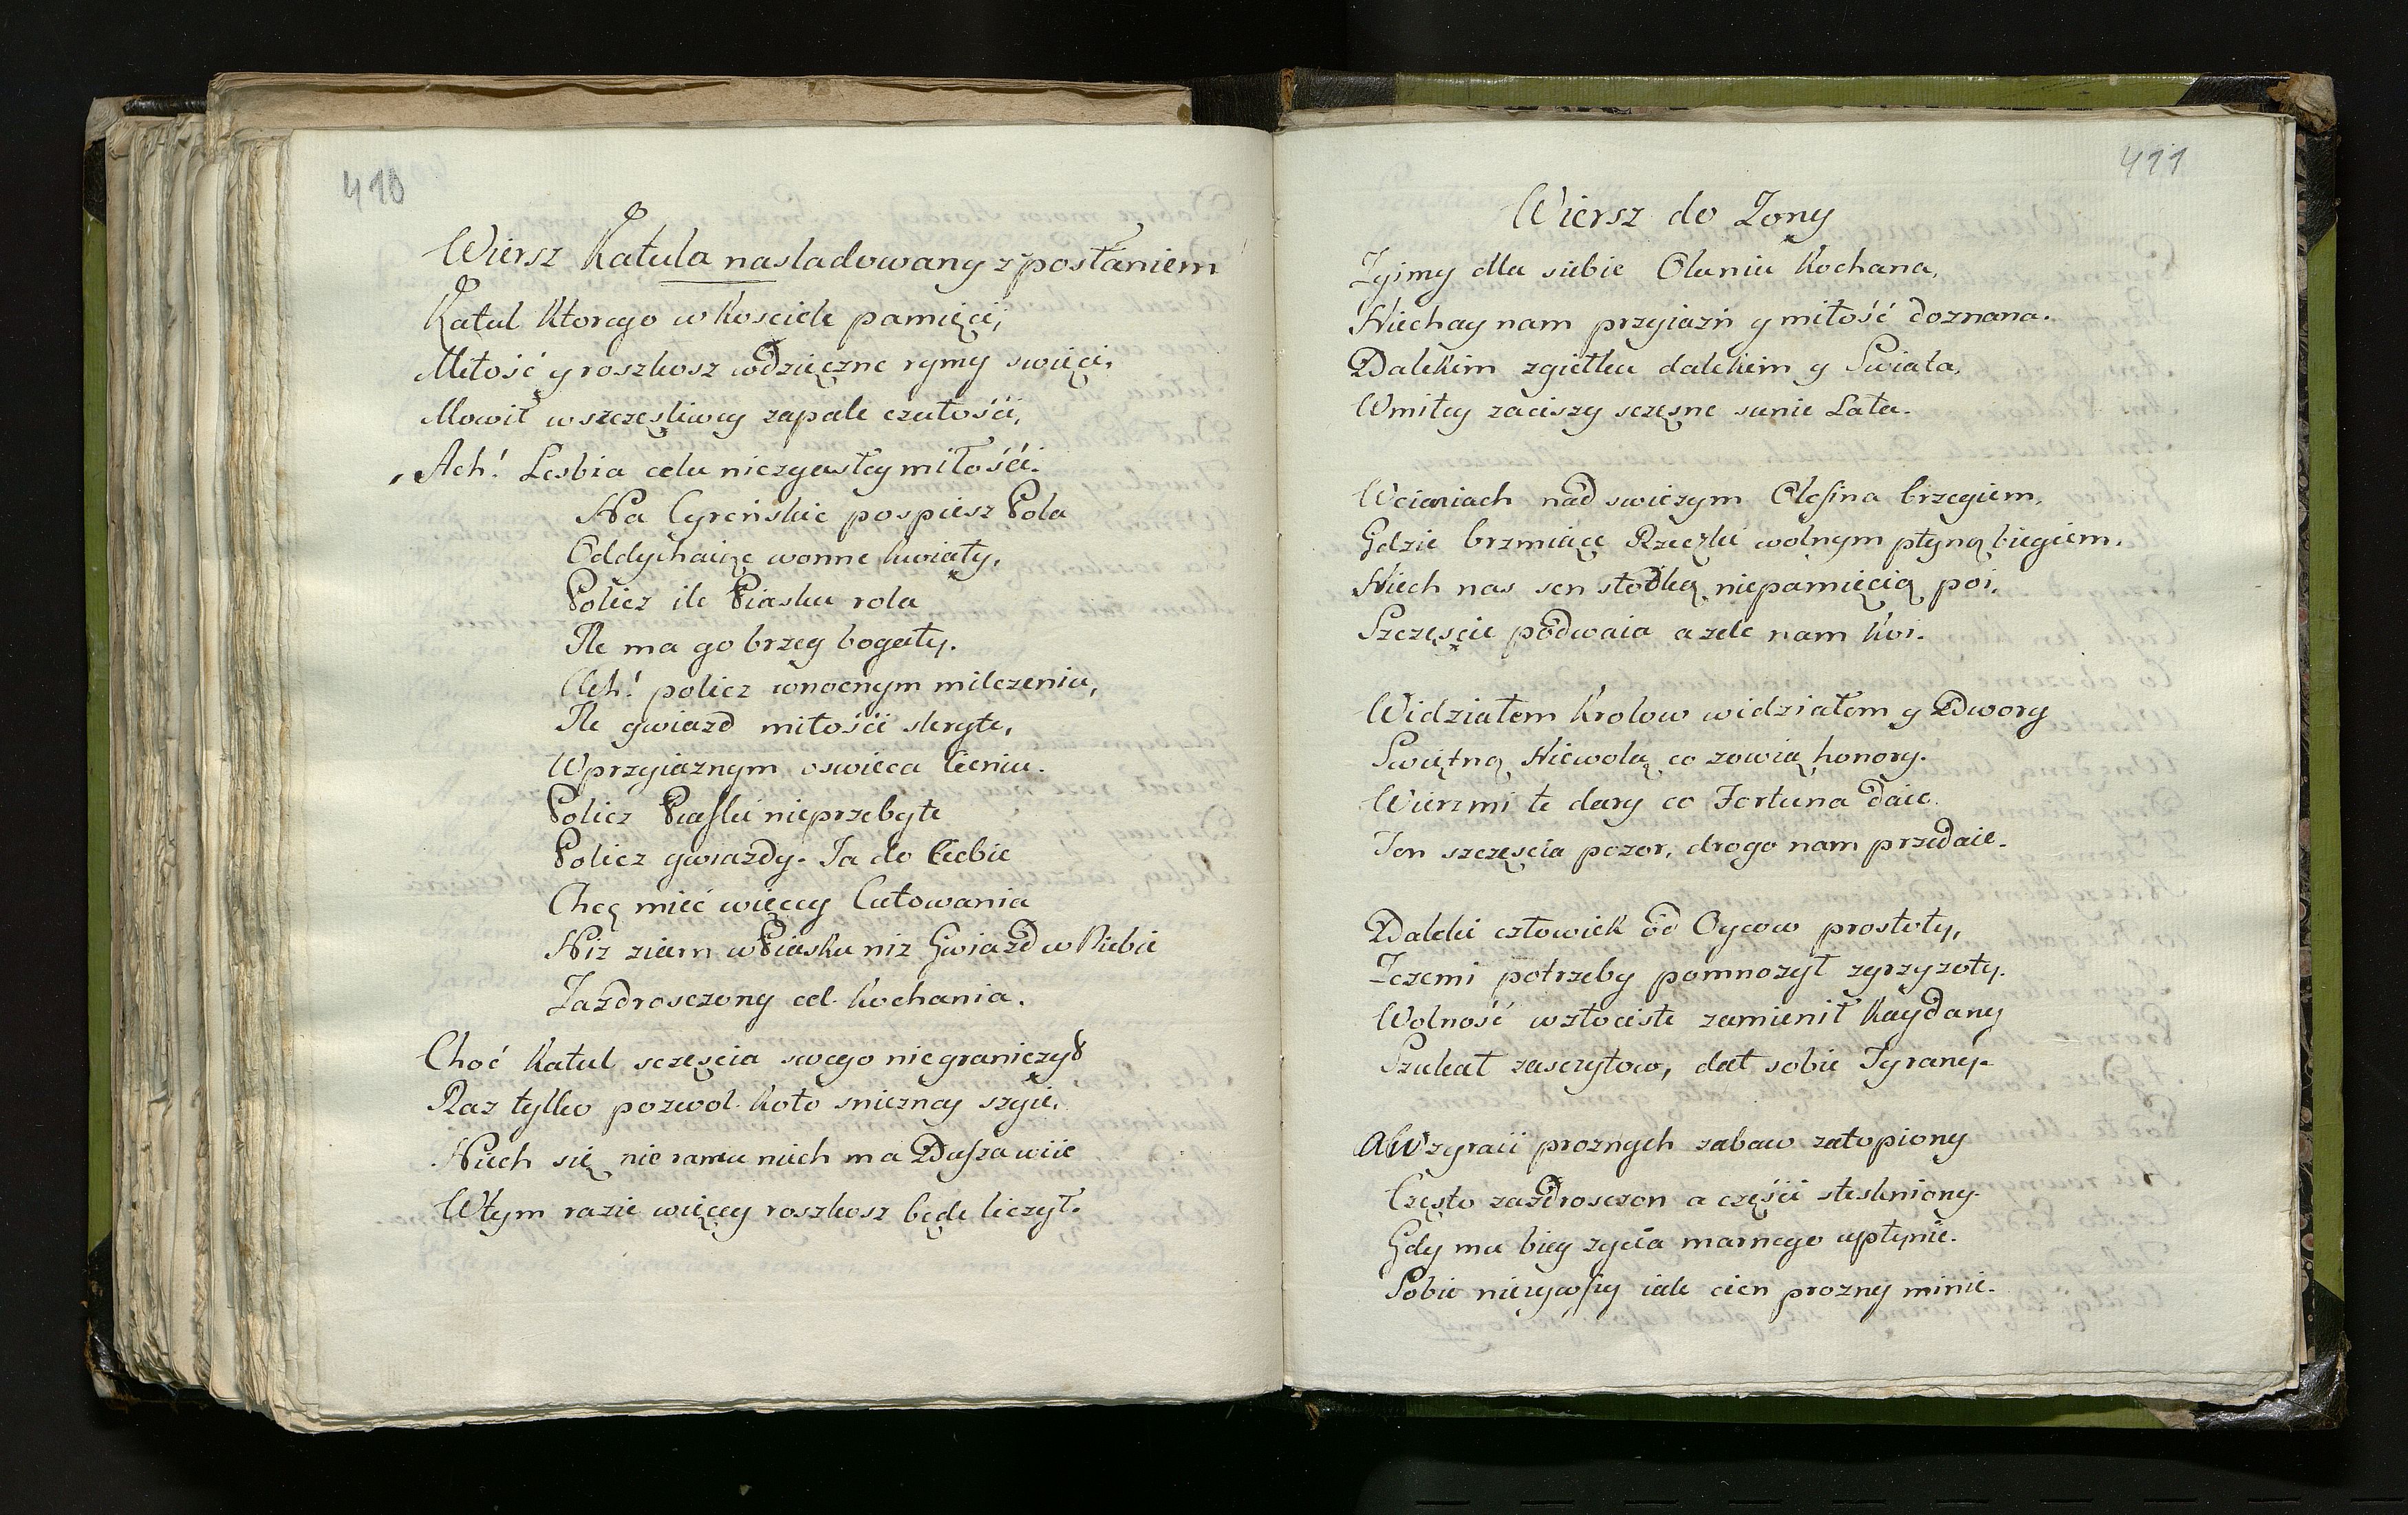 410
Wiersz Katula nasladowany z posłaniem
Katul ktorego w kosciele pamięci,
Miłość y roszkosz wdzięczne rymy swięci,
Mowił w szczęsliwey zapale czułośći,
„ Ach! Lesbia celu niezgasłey miłośći.
Na Cyreńskie pospiesz Pola
Oddychaiące wonne kwiaty,
Policz ile Piasku rola
Ile ma go brzeg bogaty.
Ach! policz wnocnym milczeniu,
Ile gwiazd miłośći skryte,
Wprzyiaznym oswieca Cieniu.
Policz Piaski nieprzebyte
Policz gwiazdy. Ja do Ciebie
Chcę mieć więcey Całowania
Niz ziarn w Piasku niz Gwiazd w Niebie
Zazdrosczony cel kochania.
Choć Katul sczęscia swego niegraniczył
Raz tylko pozwol koło sniezney szyie,
Niech się nie ramu niech ma Dusza wiie
Wtym razie więcey roszkosz będe liczył.
411
Wiersz do Zony
Zyimy dla siebie Oluniu kochana,
Niechay nam przyiaźń y miłość doznana.
Dalekim zgiełku dalekim y Swiata,
Wmiłey zaciszy sczęsne sunie Lata.
Wcieniach nad swiezym Olesina brzegiem,
Gdzie brzmiące Rzeczki wolnym płyną biegiem.
Niech nas sen słodką niepamięcią poi,
Szczęscie podwaia a zale nam koi.
Widziałem Krolow widziałem y Dwory
Swietną Niewolą co zowią honory.
Wierz mi te dary co Fortuna daie.
Ten szczęscia pozor, drogo nam przedaie.
Daleki człowiek od Oycow prostoty,
Zczemi potrzeby pomnozył zgrzyzoty.
Wolność wzłociste zamienił Kaydany
Szukał zasczytow, dał sobie Tyrany.
A W zgraii proznych zabaw zatopiony
Często zazdrosczon a częśći steskniony.
Gdy mu bieg zycia marnego upłynie.
Sobie niezywszy iak cien prozny minie.